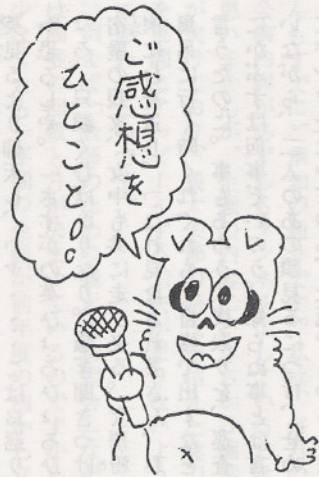 ご感想を
ひとこと!!